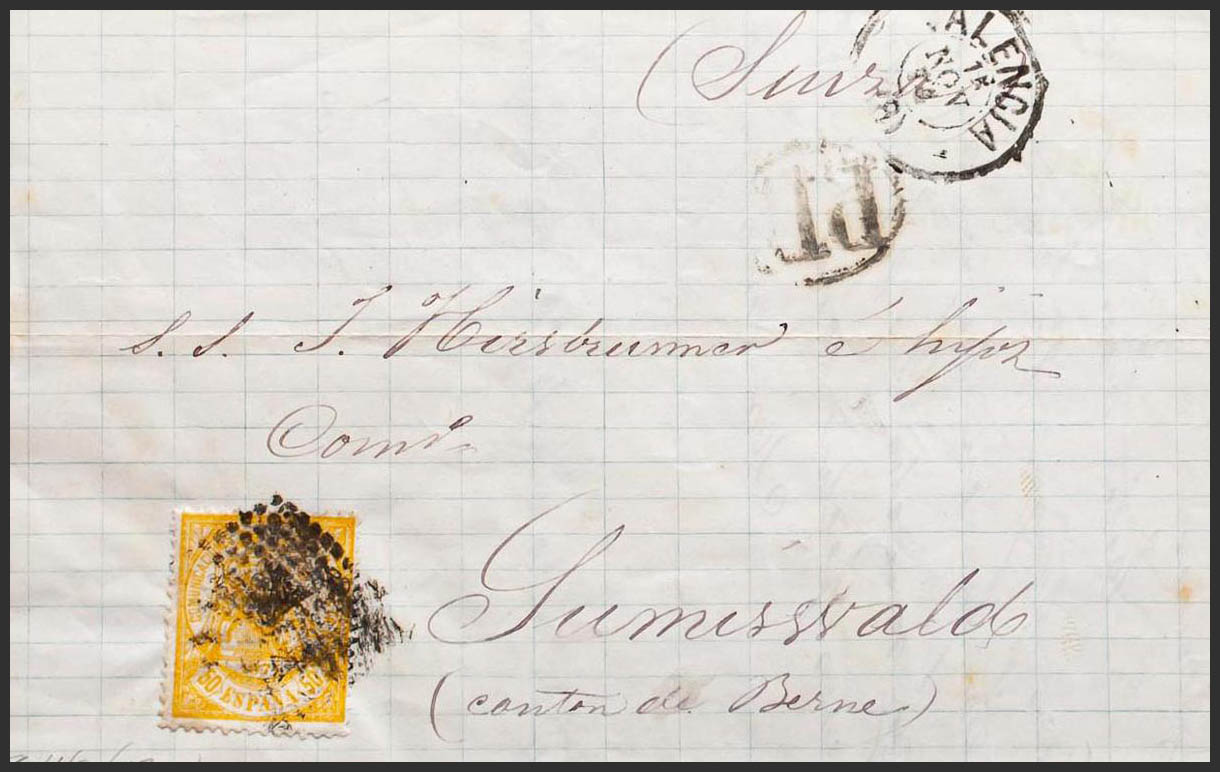 (Suiza
VALENCIA
NOV
74
PD
S. S. J. Hirsbrunner é hijos
Comte
Sumiswald
(canton de Berne)
50 ESPAÑA 50